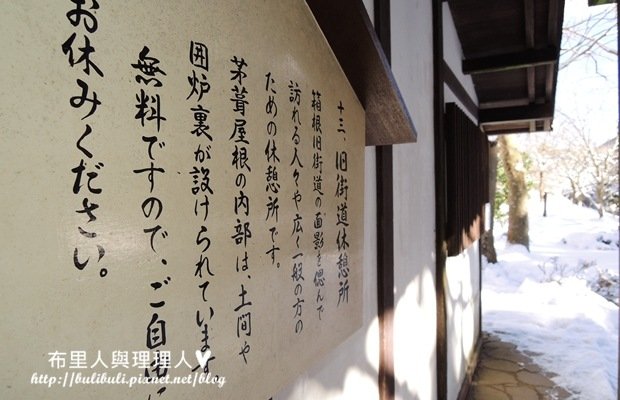 十三、旧街道休憩所
箱根旧街道の面影を偲んで
訪れる人々や広く一般の方の
ための休憩所です。
茅葺屋根の内部は、土間や
囲炉裏が設けられています
無料ですので、ご自由に
お休みください。
布里人與理理人♥
http://bulibuli.pixnet.net/blog